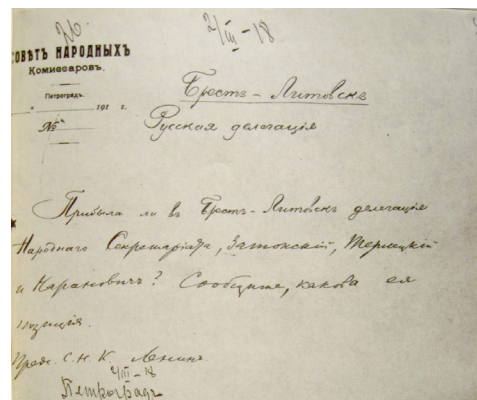 2/III-18
СОВѢТЪ НАРОДНЫХЪ
Комиссаровъ.
Петроградъ.
191 г.
№
Брестъ-Литовскъ
Русская делегація
Прибыла ли въ Брестъ-Литовскъ делегація
Народнаго Секретаріата, Затонскій, Терлецкій
и Карановичъ? Сообщите, какова ея
позиція.
Пред. С.Н.К. Ленинъ.
2/III-18
Петроградъ